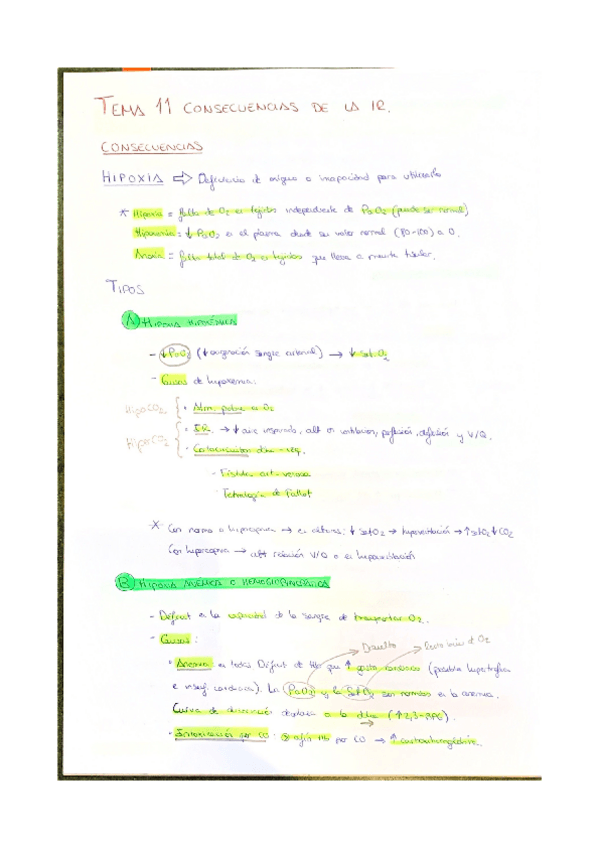 TEMA 11 CONSECUENCIAS DE LA IR.
CONSECUENCIAS
HIPOXIA ⇒ Deficiencia de oxígeno o incapacidad para utilizarlo
* Hipoxia = falta de O2 en tejidos independiente de PaO2 (puede ser normal)
Hipoxemia = ↓ PaO2 en el plasma desde su valor normal (80-100) a 0.
Anoxia = falta total de O2 en tejidos que lleva a muerte tisular.
TIPOS
A HIPOXIA HIPOXÉMICA
- ↓PaO2 (↓ oxigenación sangre arterial) → ↓ satO2
- Causas de hipoxemia:
HipoCO2
• Atm. pobre en O2
HiperCO2
• IR. → ↓ aire inspirado, alt en ventilación, perfusión, difusión y V/Q.
• Cortocircuitos dcha - izq.
- Fístulas art-venosa
- Tetralogía de Fallot
* Con normo o hipocapnia → en alturas: ↓ satO2 → hiperventilación → ↑ satO2 ↓ CO2
Con hipercapnia → alt relación V/Q o en hipoventilación
B HIPOXIA ANÉMICA O HEMOGLOBINOPÁTICA
- Déficit en la capacidad de la sangre de transportar O2.
- Causas:
Disuelto
• Anemia: en todas Déficit de Hb que ↑ gasto cardiaco (posible hipertrofia
e insuf. cardiaca). La PaO2 y la SatO2 son normales en la anemia.
Curva de disociación desplaza a la dcha (↑ 2,3-BPG).
• Intoxicación por CO: afin Hb por CO → ↑ carboxihemoglobina.